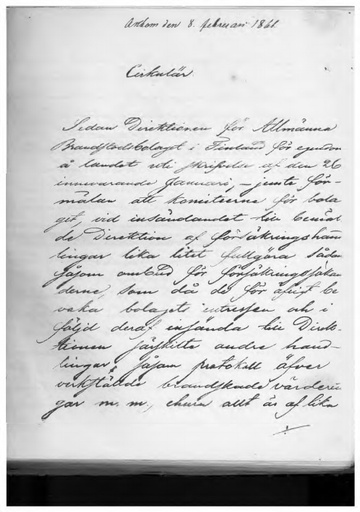 den 8. februari 1861.
Cirkulär
Sedan Direktionen för Allmänna
Brandstodsbolaget i Finland för egendom
å landet uti skrifvelse af den 26
innevarande Januari, jemte för-
mälan att komitéerna för bola
get, vid insändandet till benäm
de Direktion af försäkringshan
lingar lika litet fullgöra
såsom ombud för försäkringssökan
derne, som då de för öfrigt be
vaka bolagets intressen och i
följd deraf insända till Direk-
tionen särskilte andra hand-
lingar, såsom protokoll öfver
verkställde brandskade värderin
gar m. m., ehuru allt är af lika